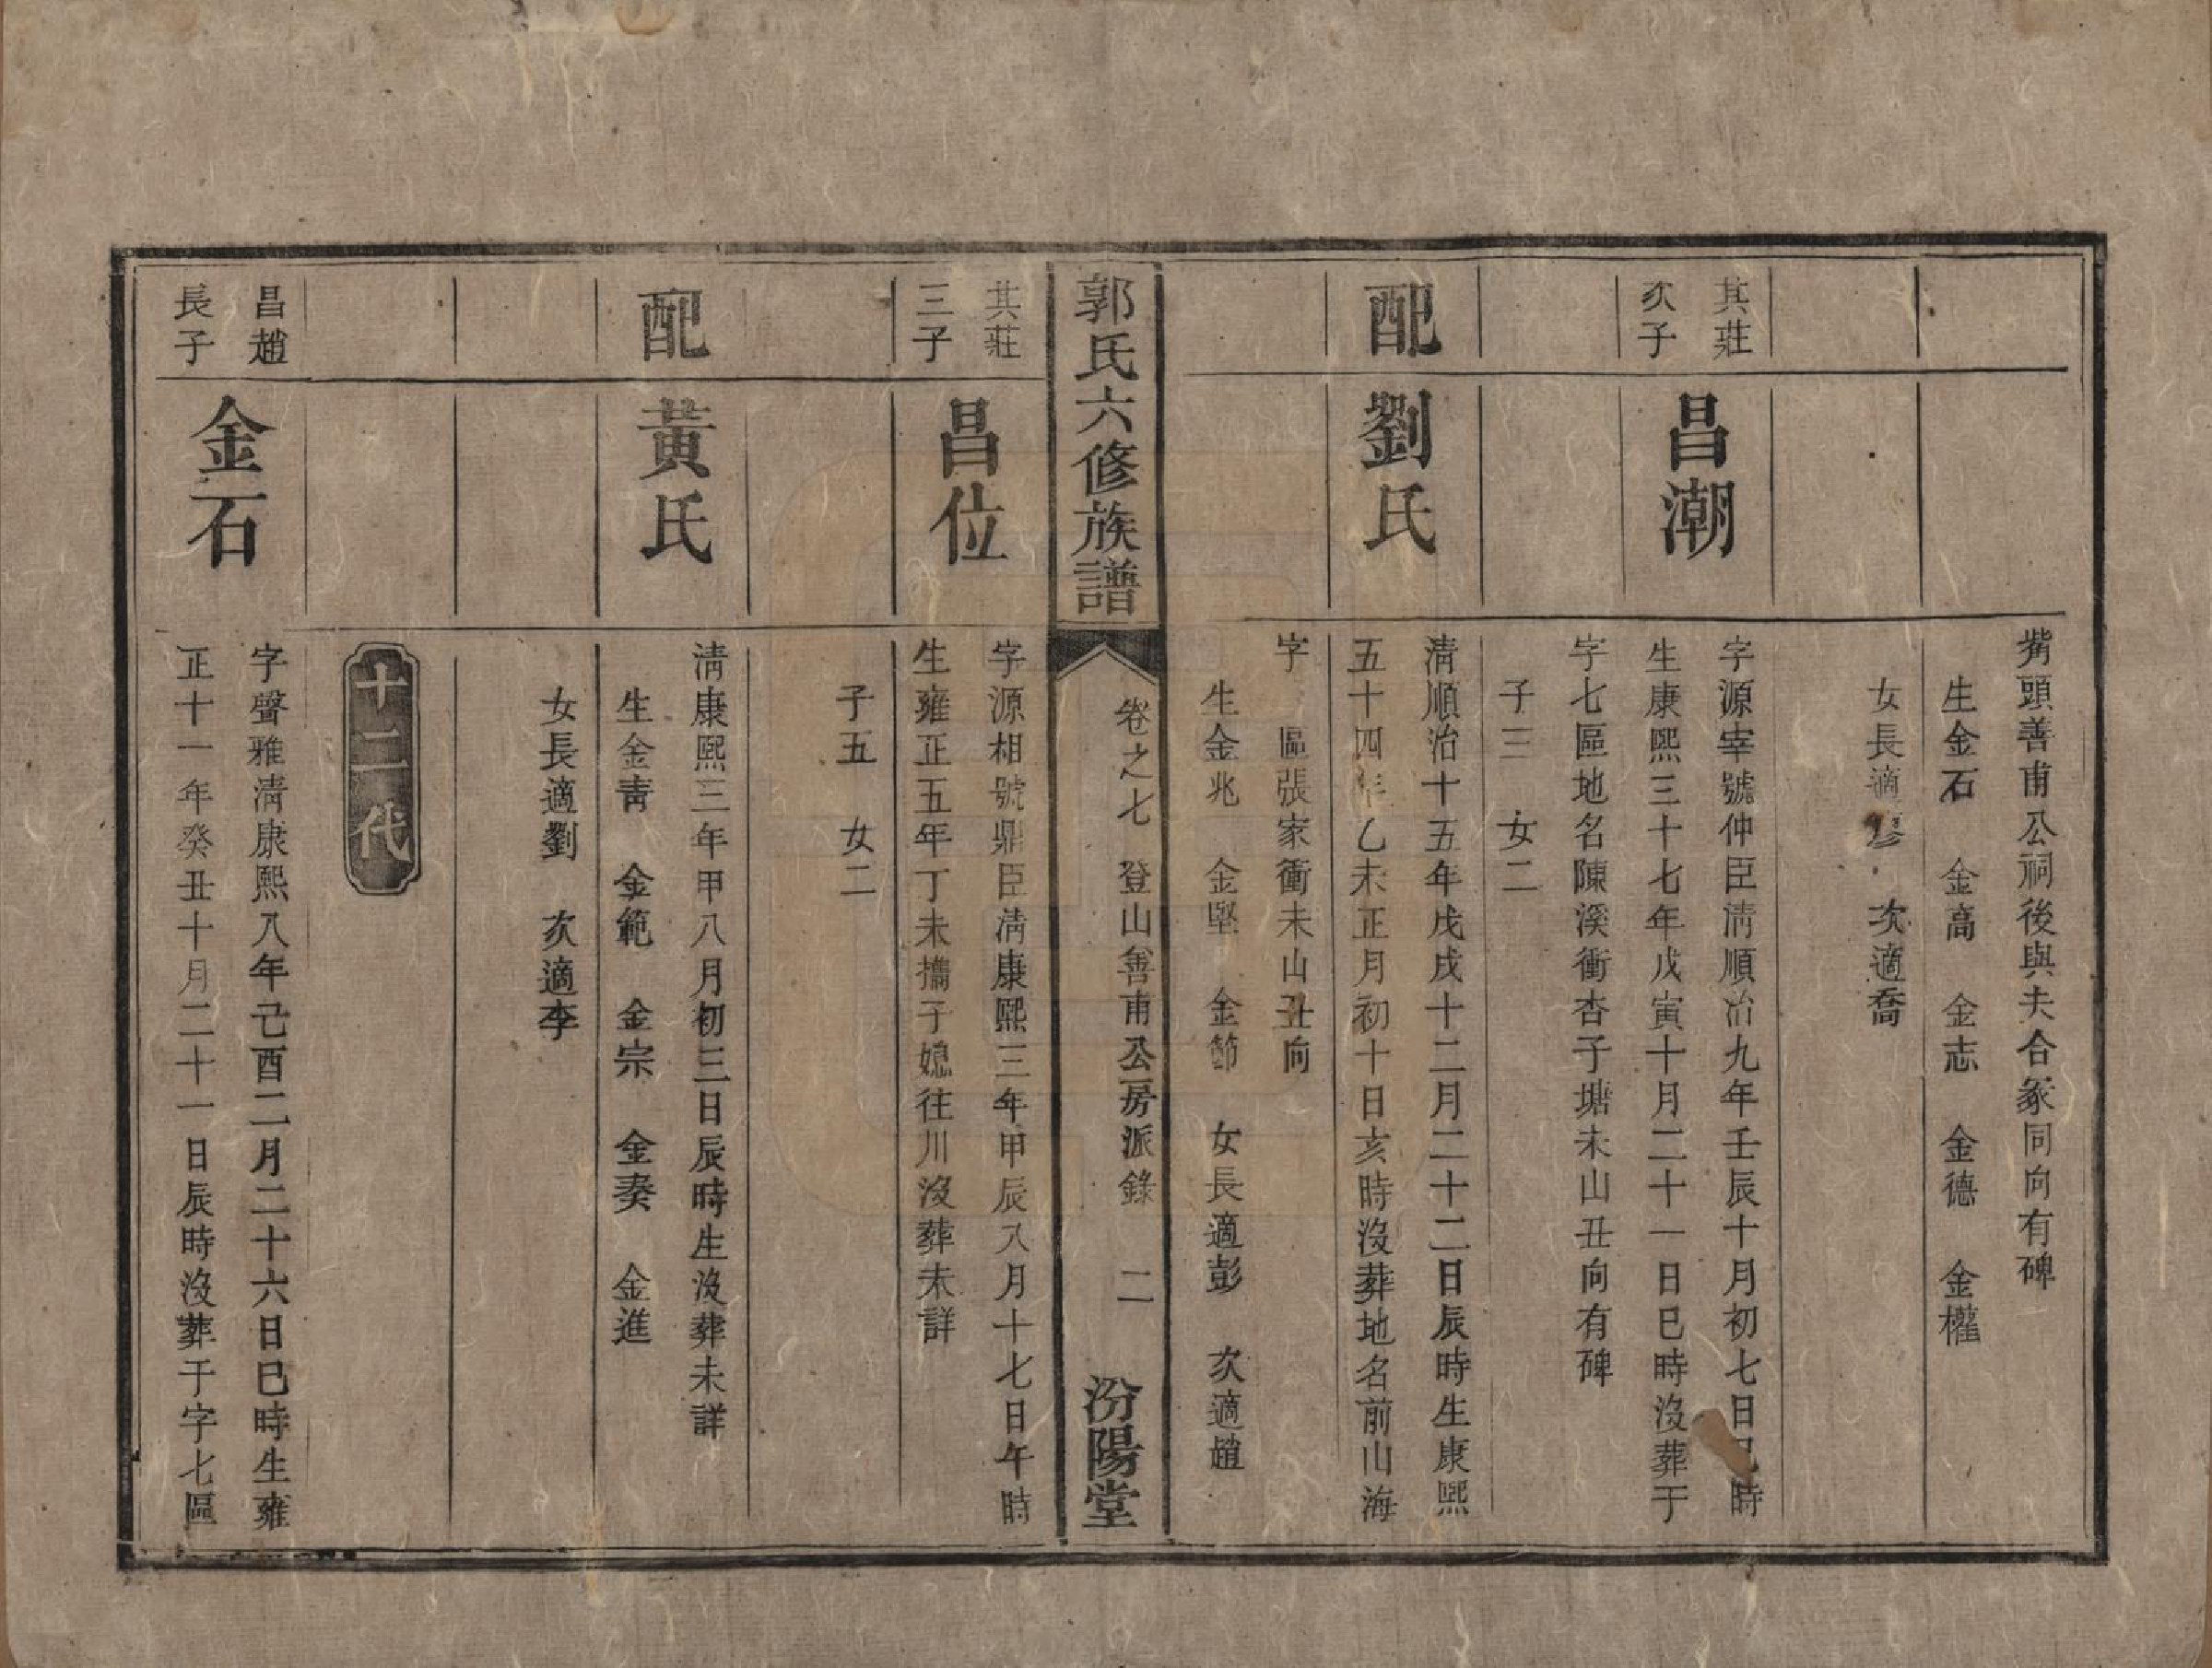 觜頭善甫公祠後與夫合冢同向有碑
生金石　金高　金志　金德　金權
女長適　次適喬
其莊
次子
昌潮
字源宰號仲臣清順治九年壬辰十月初七日巳時
生康熙三十七年戊寅十月二十一日巳時沒葬于
字七區地名陳溪衝杏子塘未山丑向有碑
子三　女二
配
劉氏
清順治十五年戊戌十二月二十二日辰時生康熙
五十四年乙未正月初十日亥時沒葬地名前山海
字　區張家衝未山丑向
生金兆　金堅　金節　女長適彭　次適趙
郭氏六修族譜
卷之七　登山善甫公房派錄　二
汾陽堂
其莊
三子
昌位
字源相號鼎臣清康熙三年甲辰八月十七日午時
生雍正五年丁未攜子媳往川沒葬未詳
子五　女二
配
黃氏
清康熙三年甲八月初三日辰時生沒葬未詳
生金青　金範　金宗　金奏　金進
女長適劉　次適李
十二代
昌趙
長子
金石
字聲雅清康熙八年己酉二月二十六日巳時生雍
正十一年癸丑十月二十一日辰時沒葬于字七區